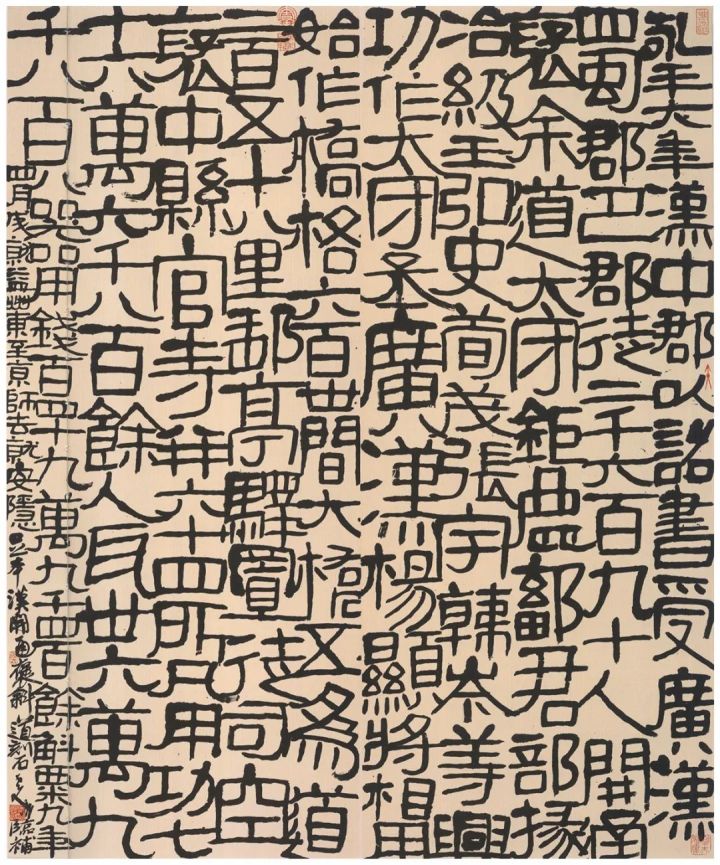 永平六年漢中郡以詔書受廣漢
蜀郡巴郡徒二千六百九十人開通
褒余道太守鉅鹿鄐君部掾
冶級王弘史荀茂張宇韓岑等興
功作太守丞廣漢楊顯將相用
始作橋格六百卅間大橋五為道
二百五十八里郵亭驛置徒司空
褒中縣官寺并六十四所凡用功七
十六萬六千八百餘人瓦卅六萬九
千八百八器用錢百四十九萬九千四百餘斛粟九年
四月成就益州東至京師去就安隱 漢開通褒斜道刻石